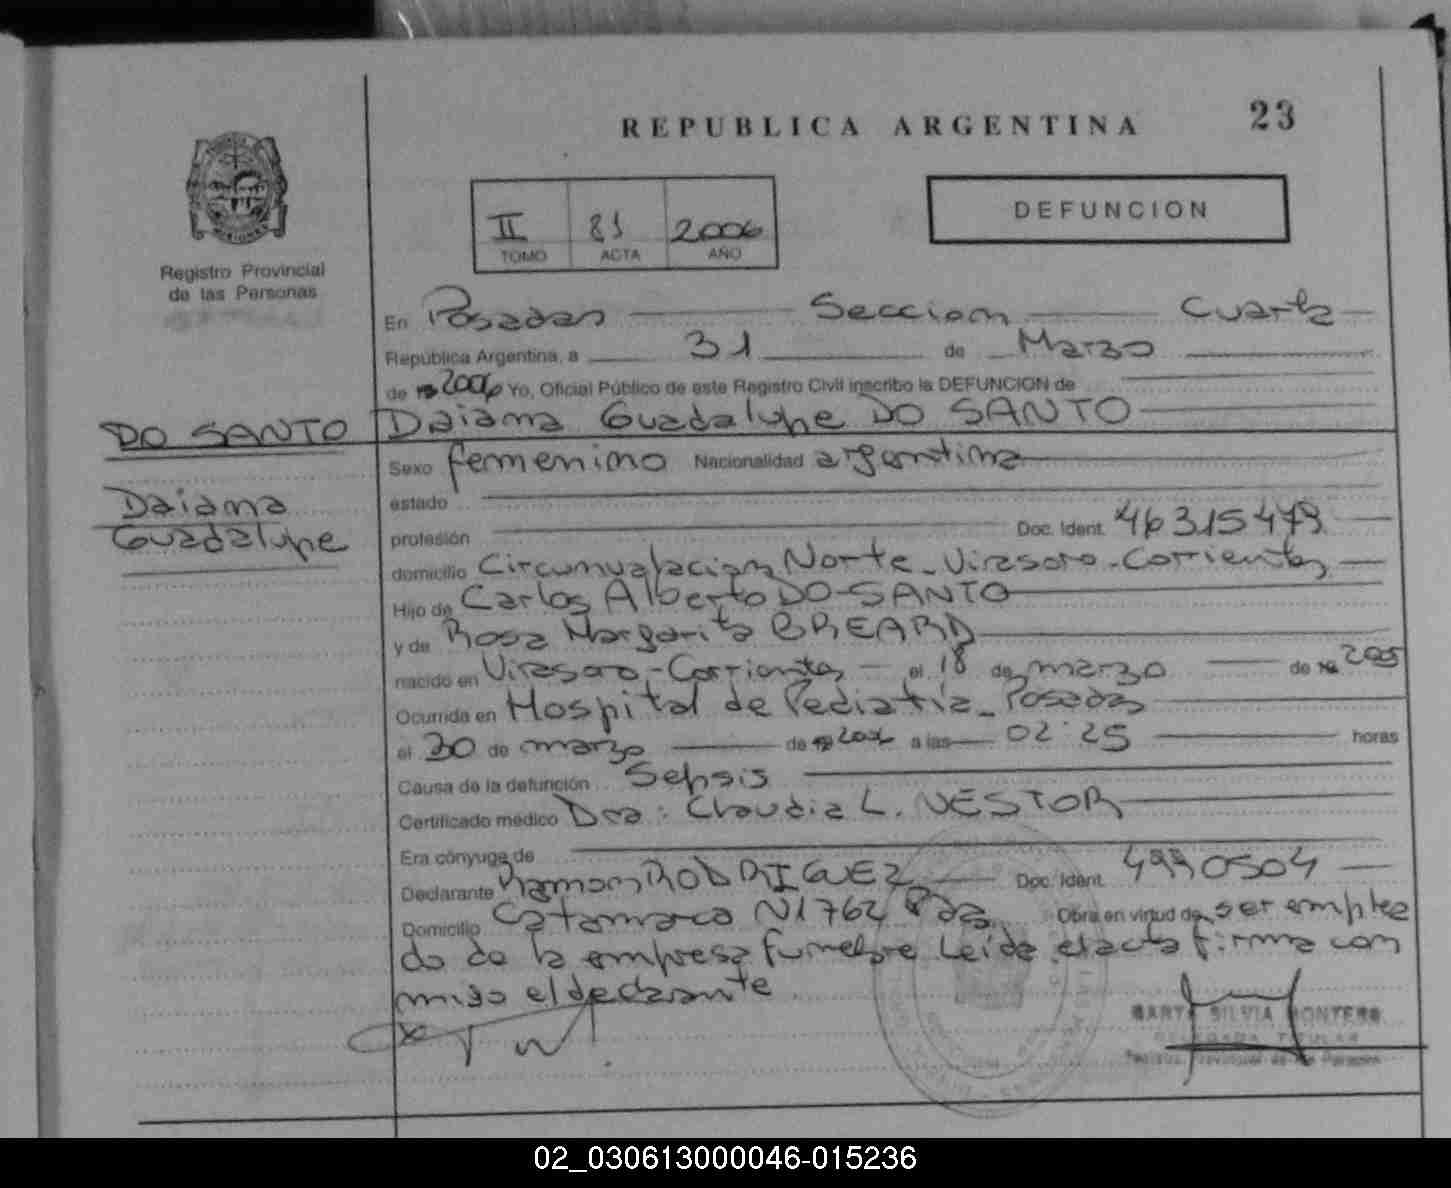 REPUBLICA ARGENTINA
23
II 81 2006
TOMO ACTA AÑO
DEFUNCION
MISIONES
Registro Provincial
de las Personas
En Posadas Seccion Cuarta
República Argentina, a 31 de Marzo
de 2006 Yo, Oficial Público de este Registro Civil inscribo la DEFUNCION de
DO SANTO Daiana Guadalupe DO SANTO
Sexo femenino Nacionalidad argentina
Daiana
Guadalupe
estado
profesión Doc. Ident. 46315479
domicilio Circunvalacion Norte-Virasoro-Corrientes
Hijo de Carlos Alberto DO SANTO
y de Rosa Margarita BREARD
nacido en Virasoro-Corrientes el 18 de marzo de 2005
Ocurrida en Hospital de Pediatría-Posadas
el 30 de marzo de 2006 a las 02:25 horas
Causa de la defunción Sepsis
Certificado médico Dra: Claudia L. NESTOR
Era cónyuge de
Declarante Ramon RODRIGUEZ Doc. Ident. 4990504
Domicilio Catamarca N1762 Pdas Obra en virtud de ser emplea
do de la empresa funebre Leida el acta firma con
migo el declarante
MARTA SILVIA MONTERO
DELEGADA TITULAR
Registro Provincial de las Personas
02_030613000046-015236